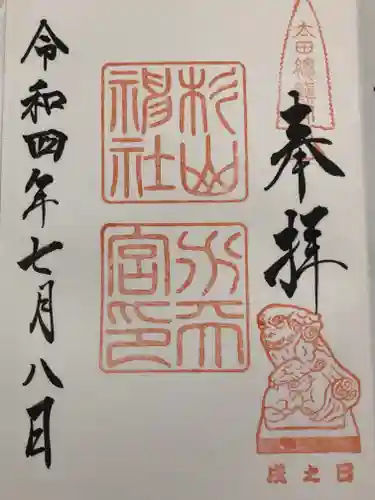 太田總鎮守
奉拝
杉山神社
水天宮印
戌之日
令和四年七月八日